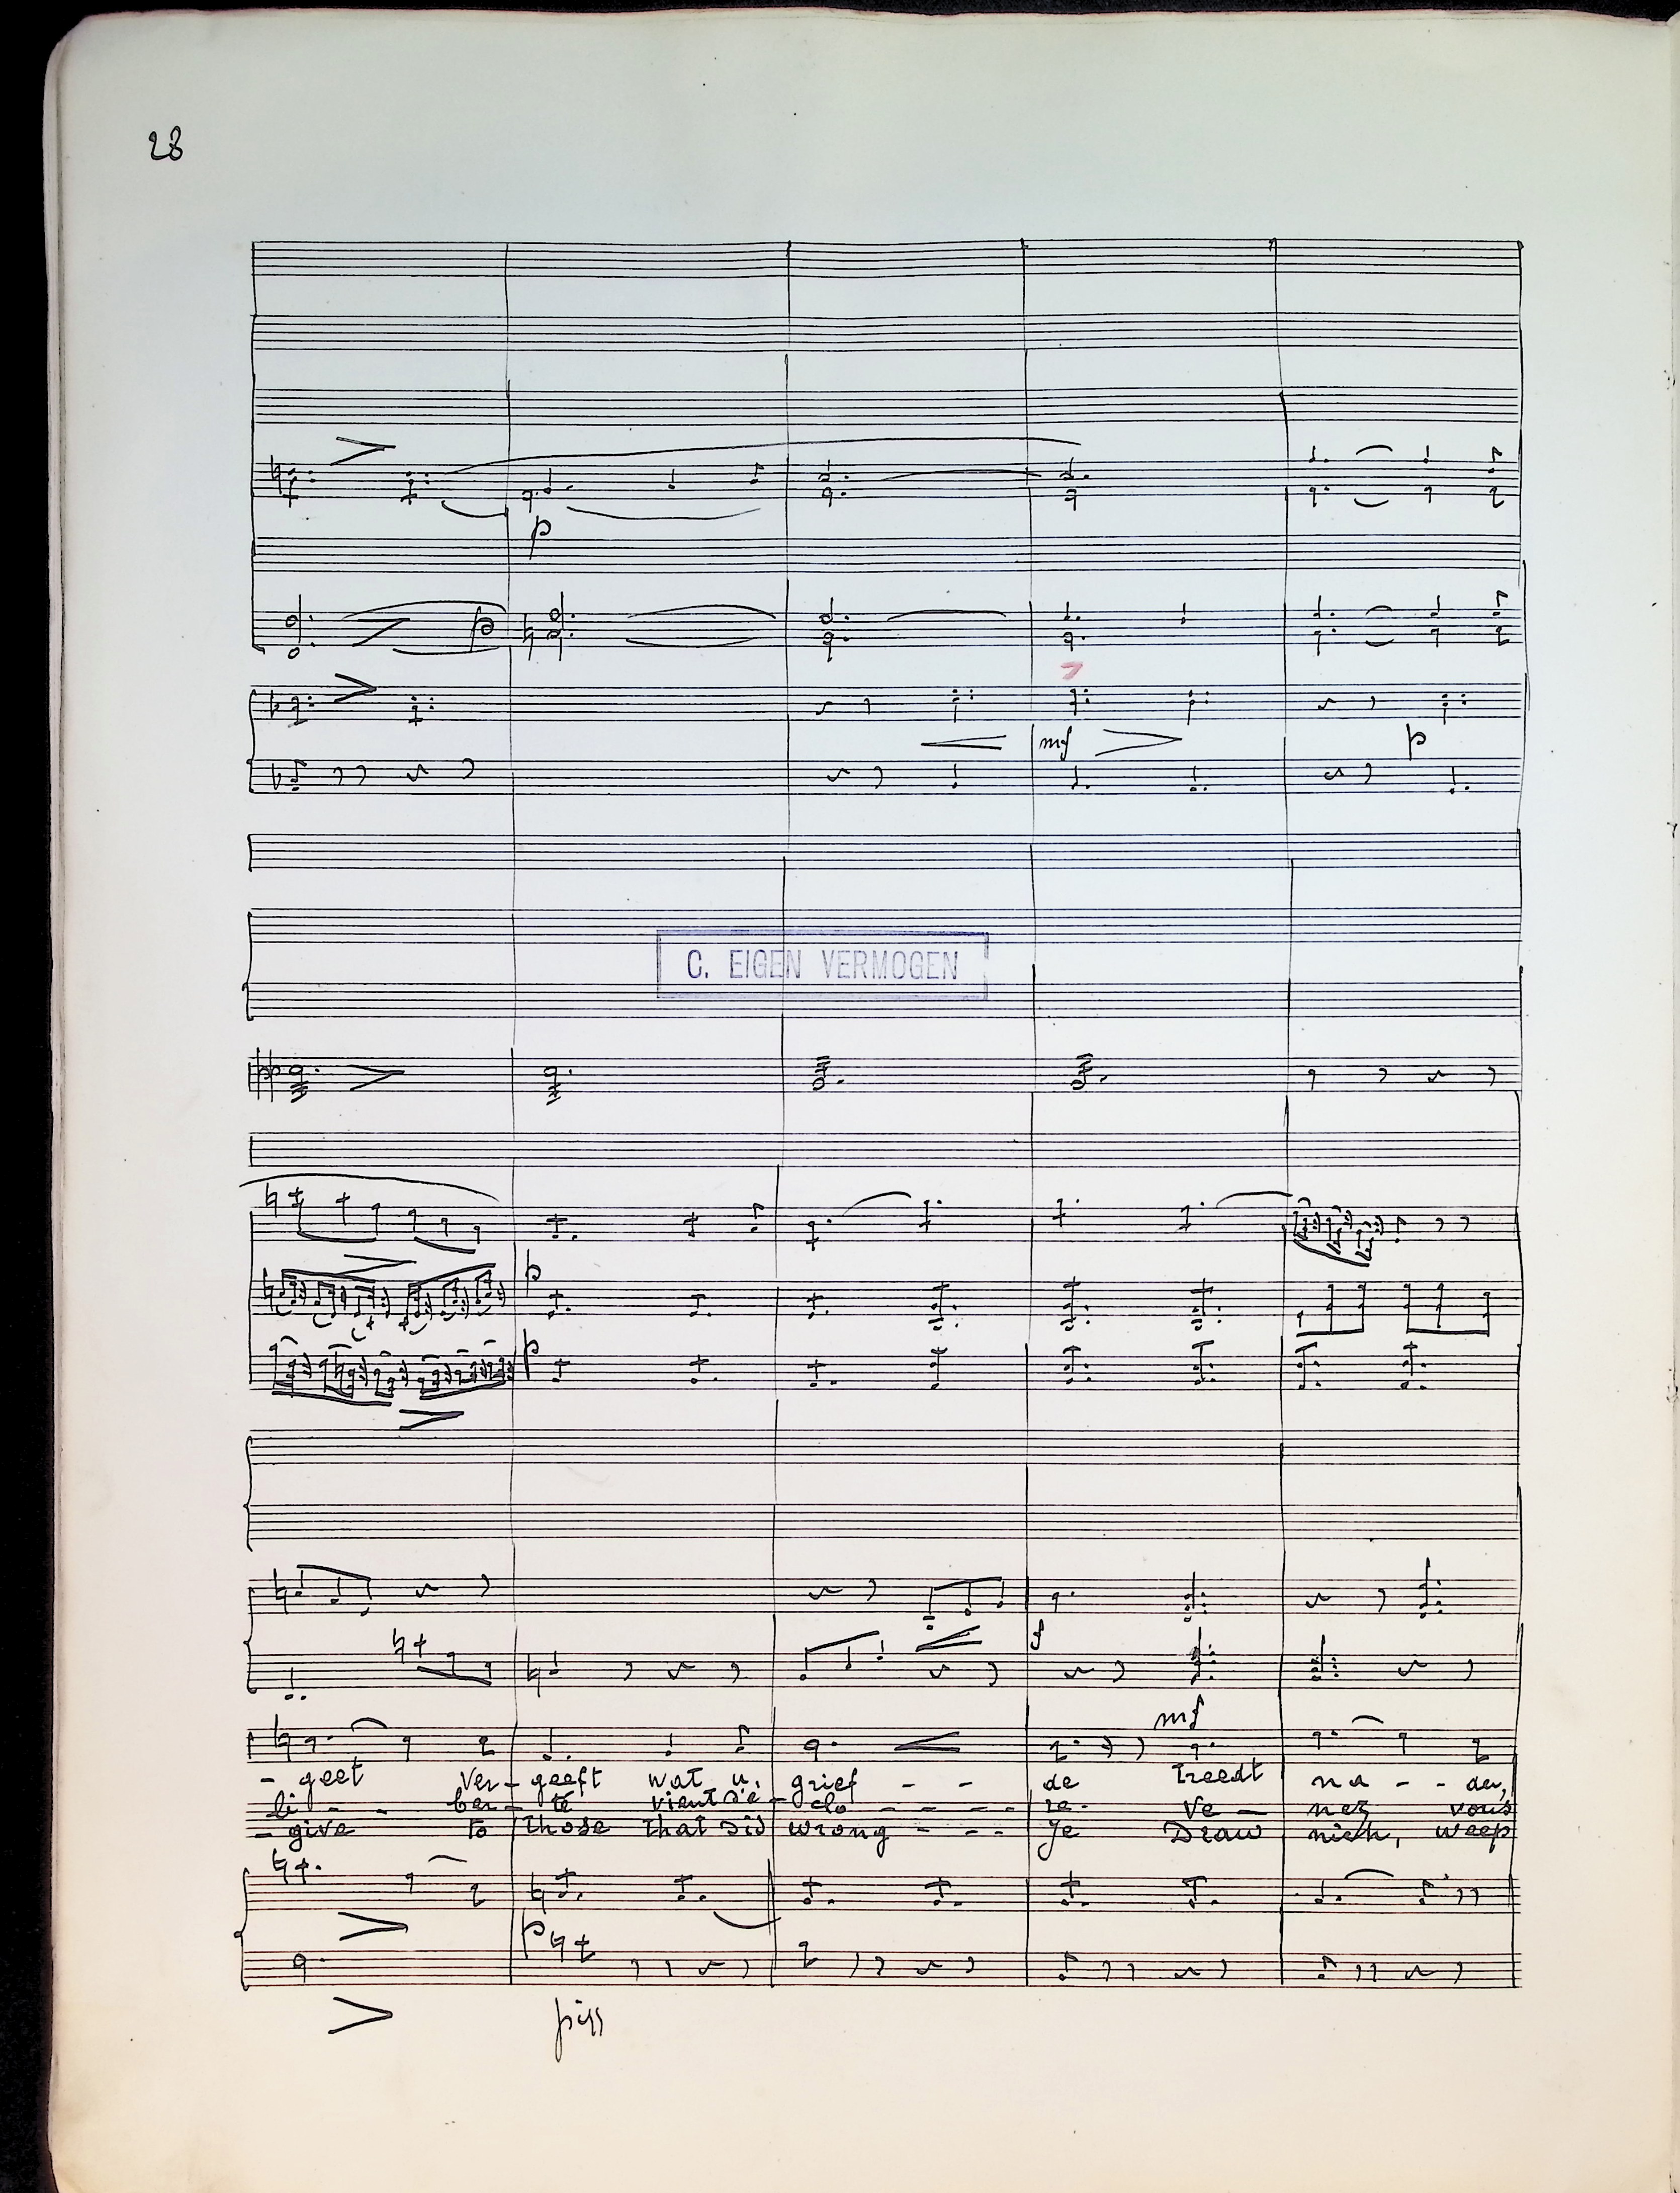 28
p
p
mf
p
C. EIGEN VERMOGEN
p
p
f
mf
- geet Ver - geeft wat u, grief - - de treedt na - - der,
li - - ber - té vient d'é - clo - - - - re. Ve - nez vous
- give to those that did wrong - - - ye Draw nigh, weep
p
pizz